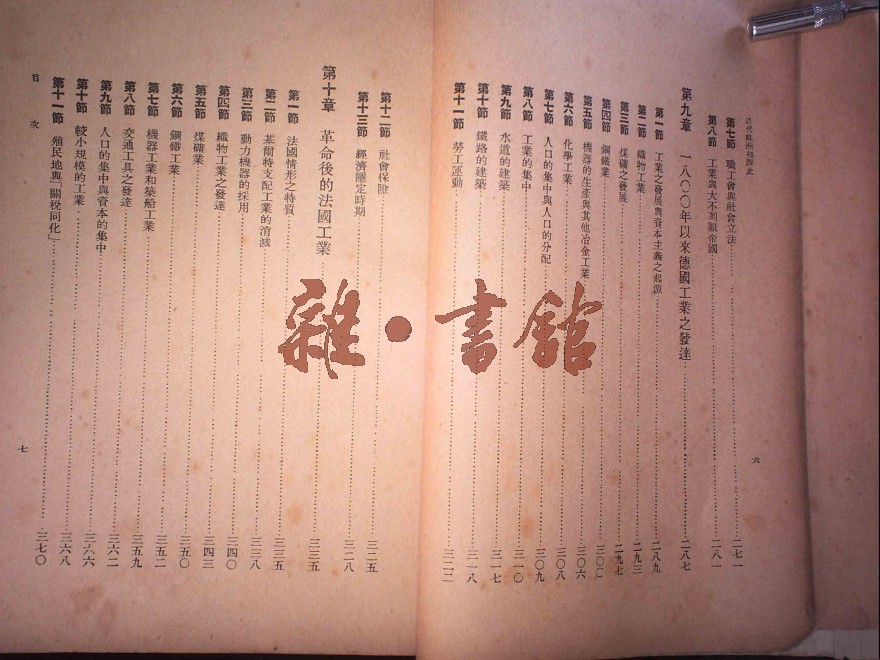 第七節 職工會與社會立法 二七一
第八節 工業與大不列顛帝國 二八一
第九章 一八〇〇年以來德國工業之發達 二八七
第一節 工業之發展與資本主義之起源 二八九
第二節 織物工業 二九三
第三節 煤礦之發展 二九七
第四節 鋼鐵業 三〇〇
第五節 機器的生產與其他冶金工業 三〇六
第六節 化學工業 三〇八
第七節 人口的集中與人口的分配 三〇九
第八節 工業的集中 三一〇
第九節 水道的建築 三一七
第十節 鐵路的建築 三一八
第十一節 勞工運動 三二二
六
第十二節 社會保險 三二五
第十三節 經濟穩定時期 三二八
第十章 革命後的法國工業 三三五
第一節 法國情形之特質 三三五
第二節 基爾特支配工業的消滅
第三節 動力機器的採用 三三八
第四節 織物工業之發達 三四〇
第五節 煤礦業 三四三
第六節 鋼鐵工業 三五〇
第七節 機器工業和築船工業 三五二
第八節 交通工具之發達 三五九
第九節 人口的集中與資本的集中 三六二
第十節 較小規模的工業 三六六
第十一節 殖民地與「關稅同化」 三六八
三七〇
目次
七
雜·書館